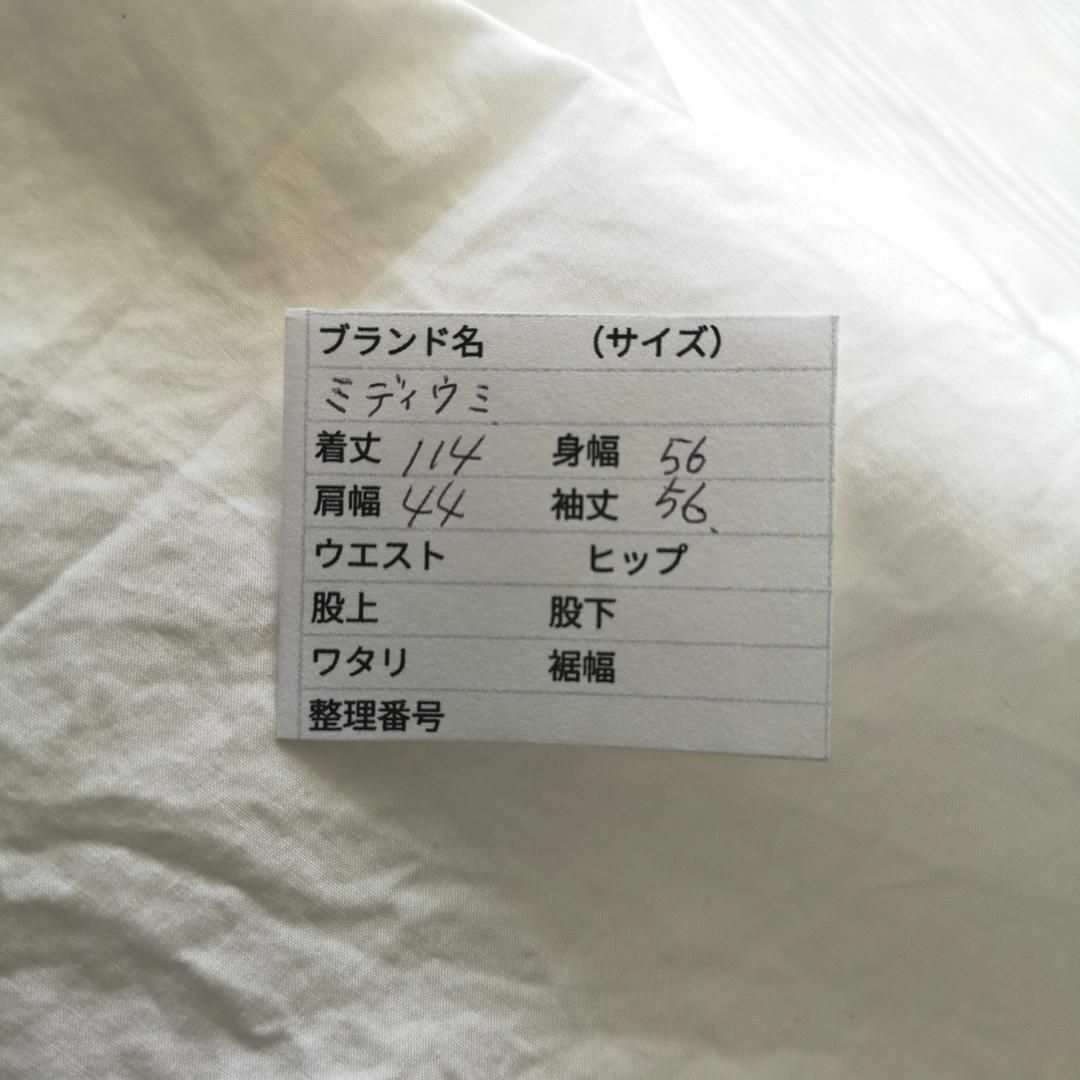 ブランド名 （サイズ）
ミディウミ
着丈 114 身幅 56
肩幅 44 袖丈 56
ウエスト ヒップ
股上 股下
ワタリ 裾幅
整理番号